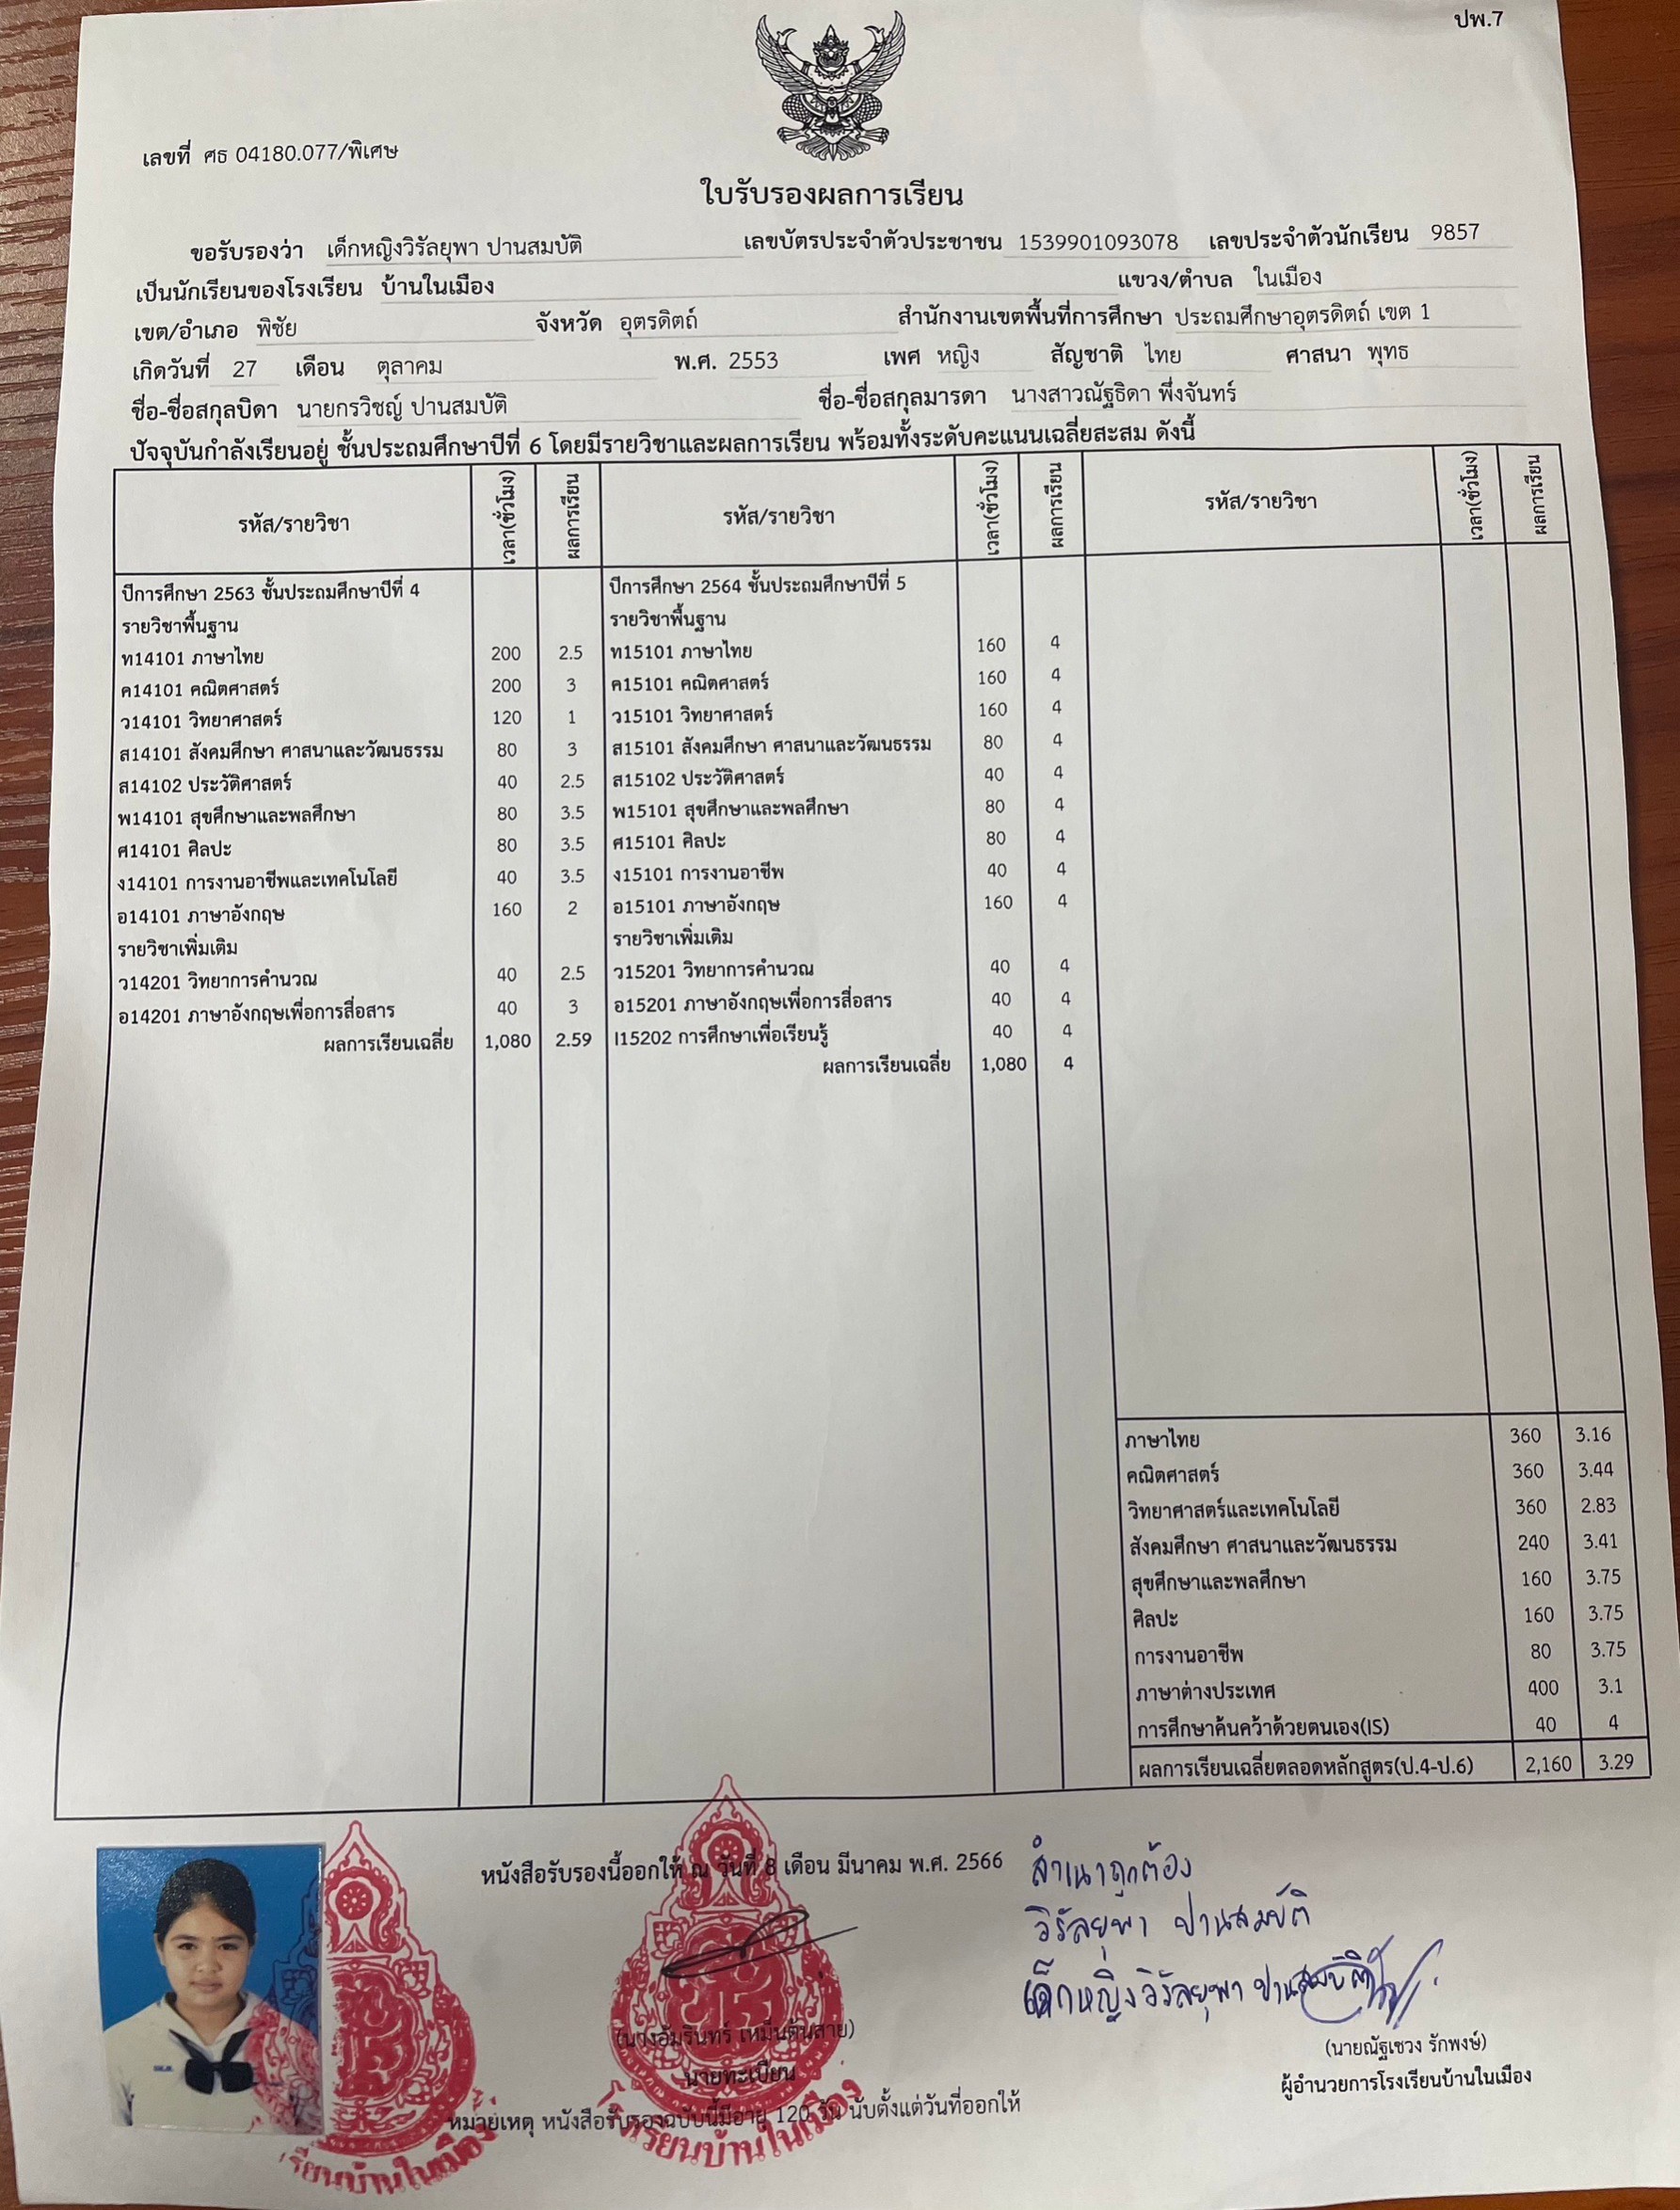 ปพ.7
เลขที่ ศธ 04180.077/พิเศษ
ใบรับรองผลการเรียน
ขอรับรองว่า เด็กหญิงวิรัลยุพา ปานสมบัติ เลขบัตรประจำตัวประชาชน 1539901093078 เลขประจำตัวนักเรียน 9857
เป็นนักเรียนของโรงเรียน บ้านในเมือง แขวง/ตำบล ในเมือง
เขต/อำเภอ พิชัย จังหวัด อุตรดิตถ์ สำนักงานเขตพื้นที่การศึกษา ประถมศึกษาอุตรดิตถ์ เขต 1
เกิดวันที่ 27 เดือน ตุลาคม พ.ศ. 2553 เพศ หญิง สัญชาติ ไทย ศาสนา พุทธ
ชื่อ-ชื่อสกุลบิดา นายกรวิชญ์ ปานสมบัติ ชื่อ-ชื่อสกุลมารดา นางสาวณัฐธิดา พึ่งจันทร์
ปัจจุบันกำลังเรียนอยู่ ชั้นประถมศึกษาปีที่ 6 โดยมีรายวิชาและผลการเรียน พร้อมทั้งระดับคะแนนเฉลี่ยสะสม ดังนี้
รหัส/รายวิชา เวลา(ชั่วโมง) ผลการเรียน รหัส/รายวิชา เวลา(ชั่วโมง) ผลการเรียน รหัส/รายวิชา เวลา(ชั่วโมง) ผลการเรียน
ปีการศึกษา 2563 ชั้นประถมศึกษาปีที่ 4
รายวิชาพื้นฐาน
ท14101 ภาษาไทย 200 2.5
ค14101 คณิตศาสตร์ 200 3
ว14101 วิทยาศาสตร์ 120 1
ส14101 สังคมศึกษา ศาสนาและวัฒนธรรม 80 3
ส14102 ประวัติศาสตร์ 40 2.5
พ14101 สุขศึกษาและพลศึกษา 80 3.5
ศ14101 ศิลปะ 80 3.5
ง14101 การงานอาชีพและเทคโนโลยี 40 3.5
อ14101 ภาษาอังกฤษ 160 2
รายวิชาเพิ่มเติม
ว14201 วิทยาการคำนวณ 40 2.5
อ14201 ภาษาอังกฤษเพื่อการสื่อสาร 40 3
ผลการเรียนเฉลี่ย 1,080 2.59
ปีการศึกษา 2564 ชั้นประถมศึกษาปีที่ 5
รายวิชาพื้นฐาน
ท15101 ภาษาไทย 160 4
ค15101 คณิตศาสตร์ 160 4
ว15101 วิทยาศาสตร์ 160 4
ส15101 สังคมศึกษา ศาสนาและวัฒนธรรม 80 4
ส15102 ประวัติศาสตร์ 40 4
พ15101 สุขศึกษาและพลศึกษา 80 4
ศ15101 ศิลปะ 80 4
ง15101 การงานอาชีพ 40 4
อ15101 ภาษาอังกฤษ 160 4
รายวิชาเพิ่มเติม
ว15201 วิทยาการคำนวณ 40 4
อ15201 ภาษาอังกฤษเพื่อการสื่อสาร 40 4
I15202 การศึกษาเพื่อเรียนรู้ 40 4
ผลการเรียนเฉลี่ย 1,080 4
ภาษาไทย 360 3.16
คณิตศาสตร์ 360 3.44
วิทยาศาสตร์และเทคโนโลยี 360 2.83
สังคมศึกษา ศาสนาและวัฒนธรรม 240 3.41
สุขศึกษาและพลศึกษา 160 3.75
ศิลปะ 160 3.75
การงานอาชีพ 80 3.75
ภาษาต่างประเทศ 400 3.1
การศึกษาค้นคว้าด้วยตนเอง(IS) 40 4
ผลการเรียนเฉลี่ยตลอดหลักสูตร(ป.4-ป.6) 2,160 3.29
หนังสือรับรองนี้ออกให้ ณ วันที่ 8 เดือน มีนาคม พ.ศ. 2566
สำเนาถูกต้อง
วิรัลยุพา ปานสมบัติ
เด็กหญิงวิรัลยุพา ปานสมบัติ
(นางอัมรินทร์ เหม็นต้นสาย)
นายทะเบียน
(นายณัฐเชวง รักพงษ์)
ผู้อำนวยการโรงเรียนบ้านในเมือง
หมายเหตุ หนังสือรับรองฉบับนี้มีอายุ 120 วัน นับตั้งแต่วันที่ออกให้
เรียนบ้านในเมือง
เรียนบ้านในเมือง